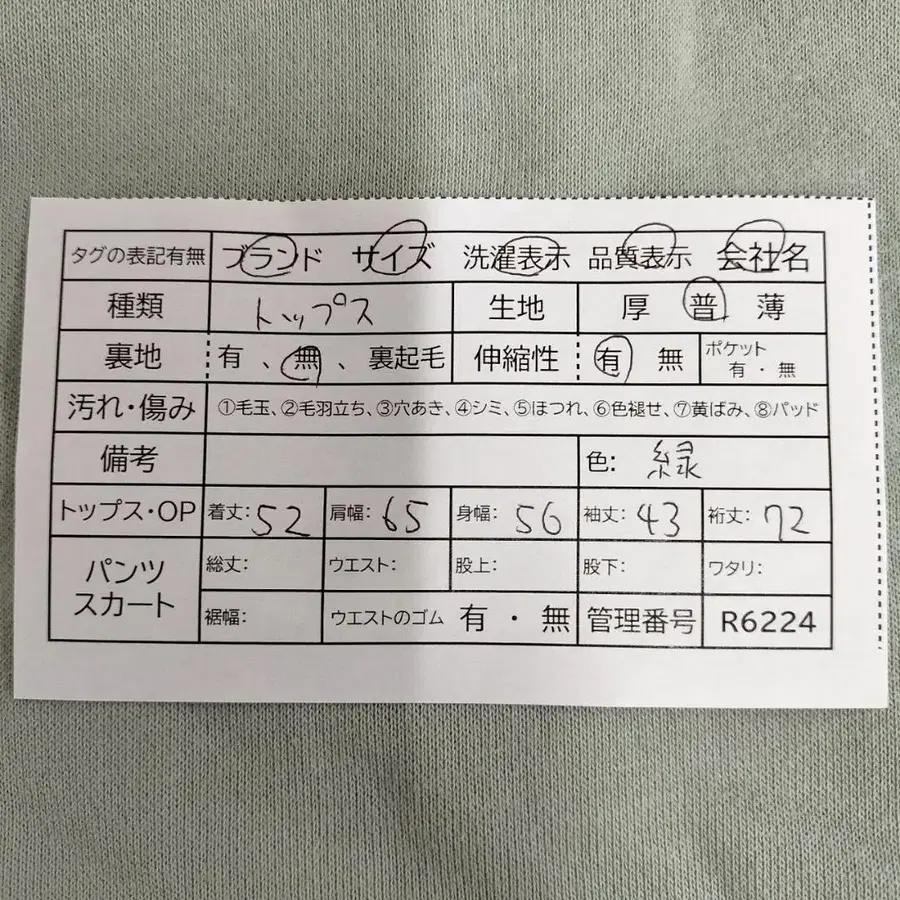 タグの表記有無 ブランド サイズ 洗濯表示 品質表示 会社名
種類 トップス 生地 厚 普 薄
裏地 有 、無、裏起毛 伸縮性 有 無 ポケット 有・無
汚れ・傷み ①毛玉、②毛羽立ち、③穴あき、④シミ、⑤ほつれ、⑥色褪せ、⑦黄ばみ、⑧パッド
備考 色: 緑
トップス・OP 着丈:52 肩幅:65 身幅:56 袖丈:43 裄丈:72
パンツ スカート 総丈: ウエスト: 股上: 股下: ワタリ:
裾幅: ウエストのゴム 有・無 管理番号 R6224